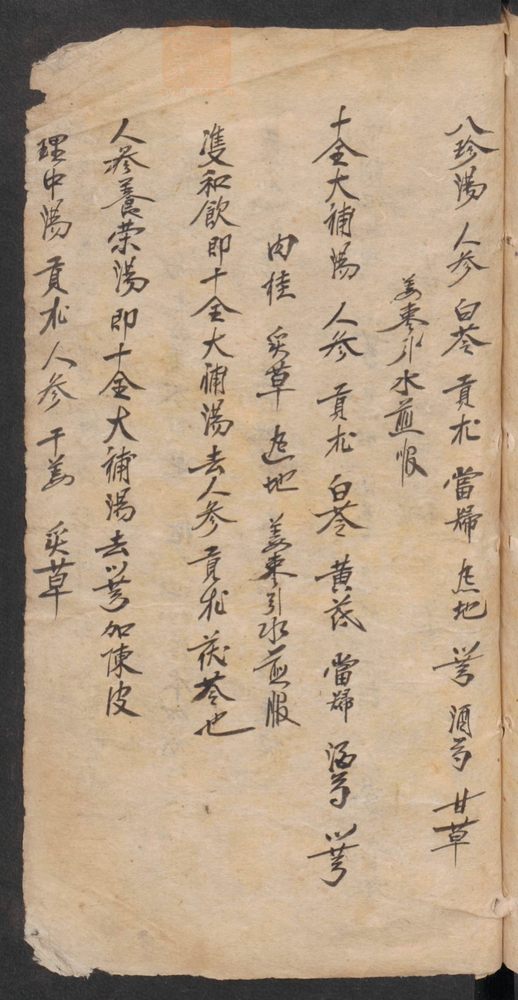 八珍湯 人参 白苓 貢朮 當歸 芐地 川芎 酒芍 甘草
姜枣引水煎服
十全大補湯 人参 貢朮 白苓 黃芪 當歸 酒芍 川芎
肉桂 炙草 芐地 姜枣引水煎服
隻和飲即十全大補湯去人参貢朮茯苓也
人参養榮湯即十全大補湯去川芎加陳皮
理中湯 貢朮 人参 干姜 炙草